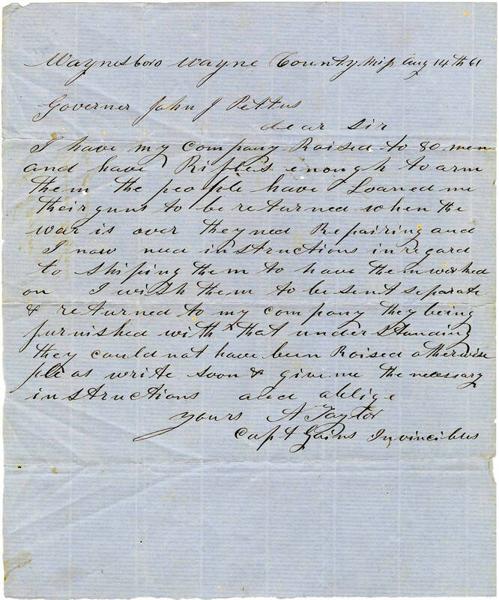 Waynesboro Wayne County Mip Aug 14th 61
Governer John J Pettus
dear Sir
I have my Company Raised to 80 men
and have Rifles enough to arm
them the people have Loaned me
their guns to be returned when the
war is over they ned Repairing and
I now ned instructions in regard
to shiping them to have them worked
on I wish them to be sent separate
& returned to my company they being
furnished with that understanding
they could not have been Raised otherwise
pleas write soon & give me the necessary
instructions and oblige
yours A Taylor
Capt Gains Invincibles